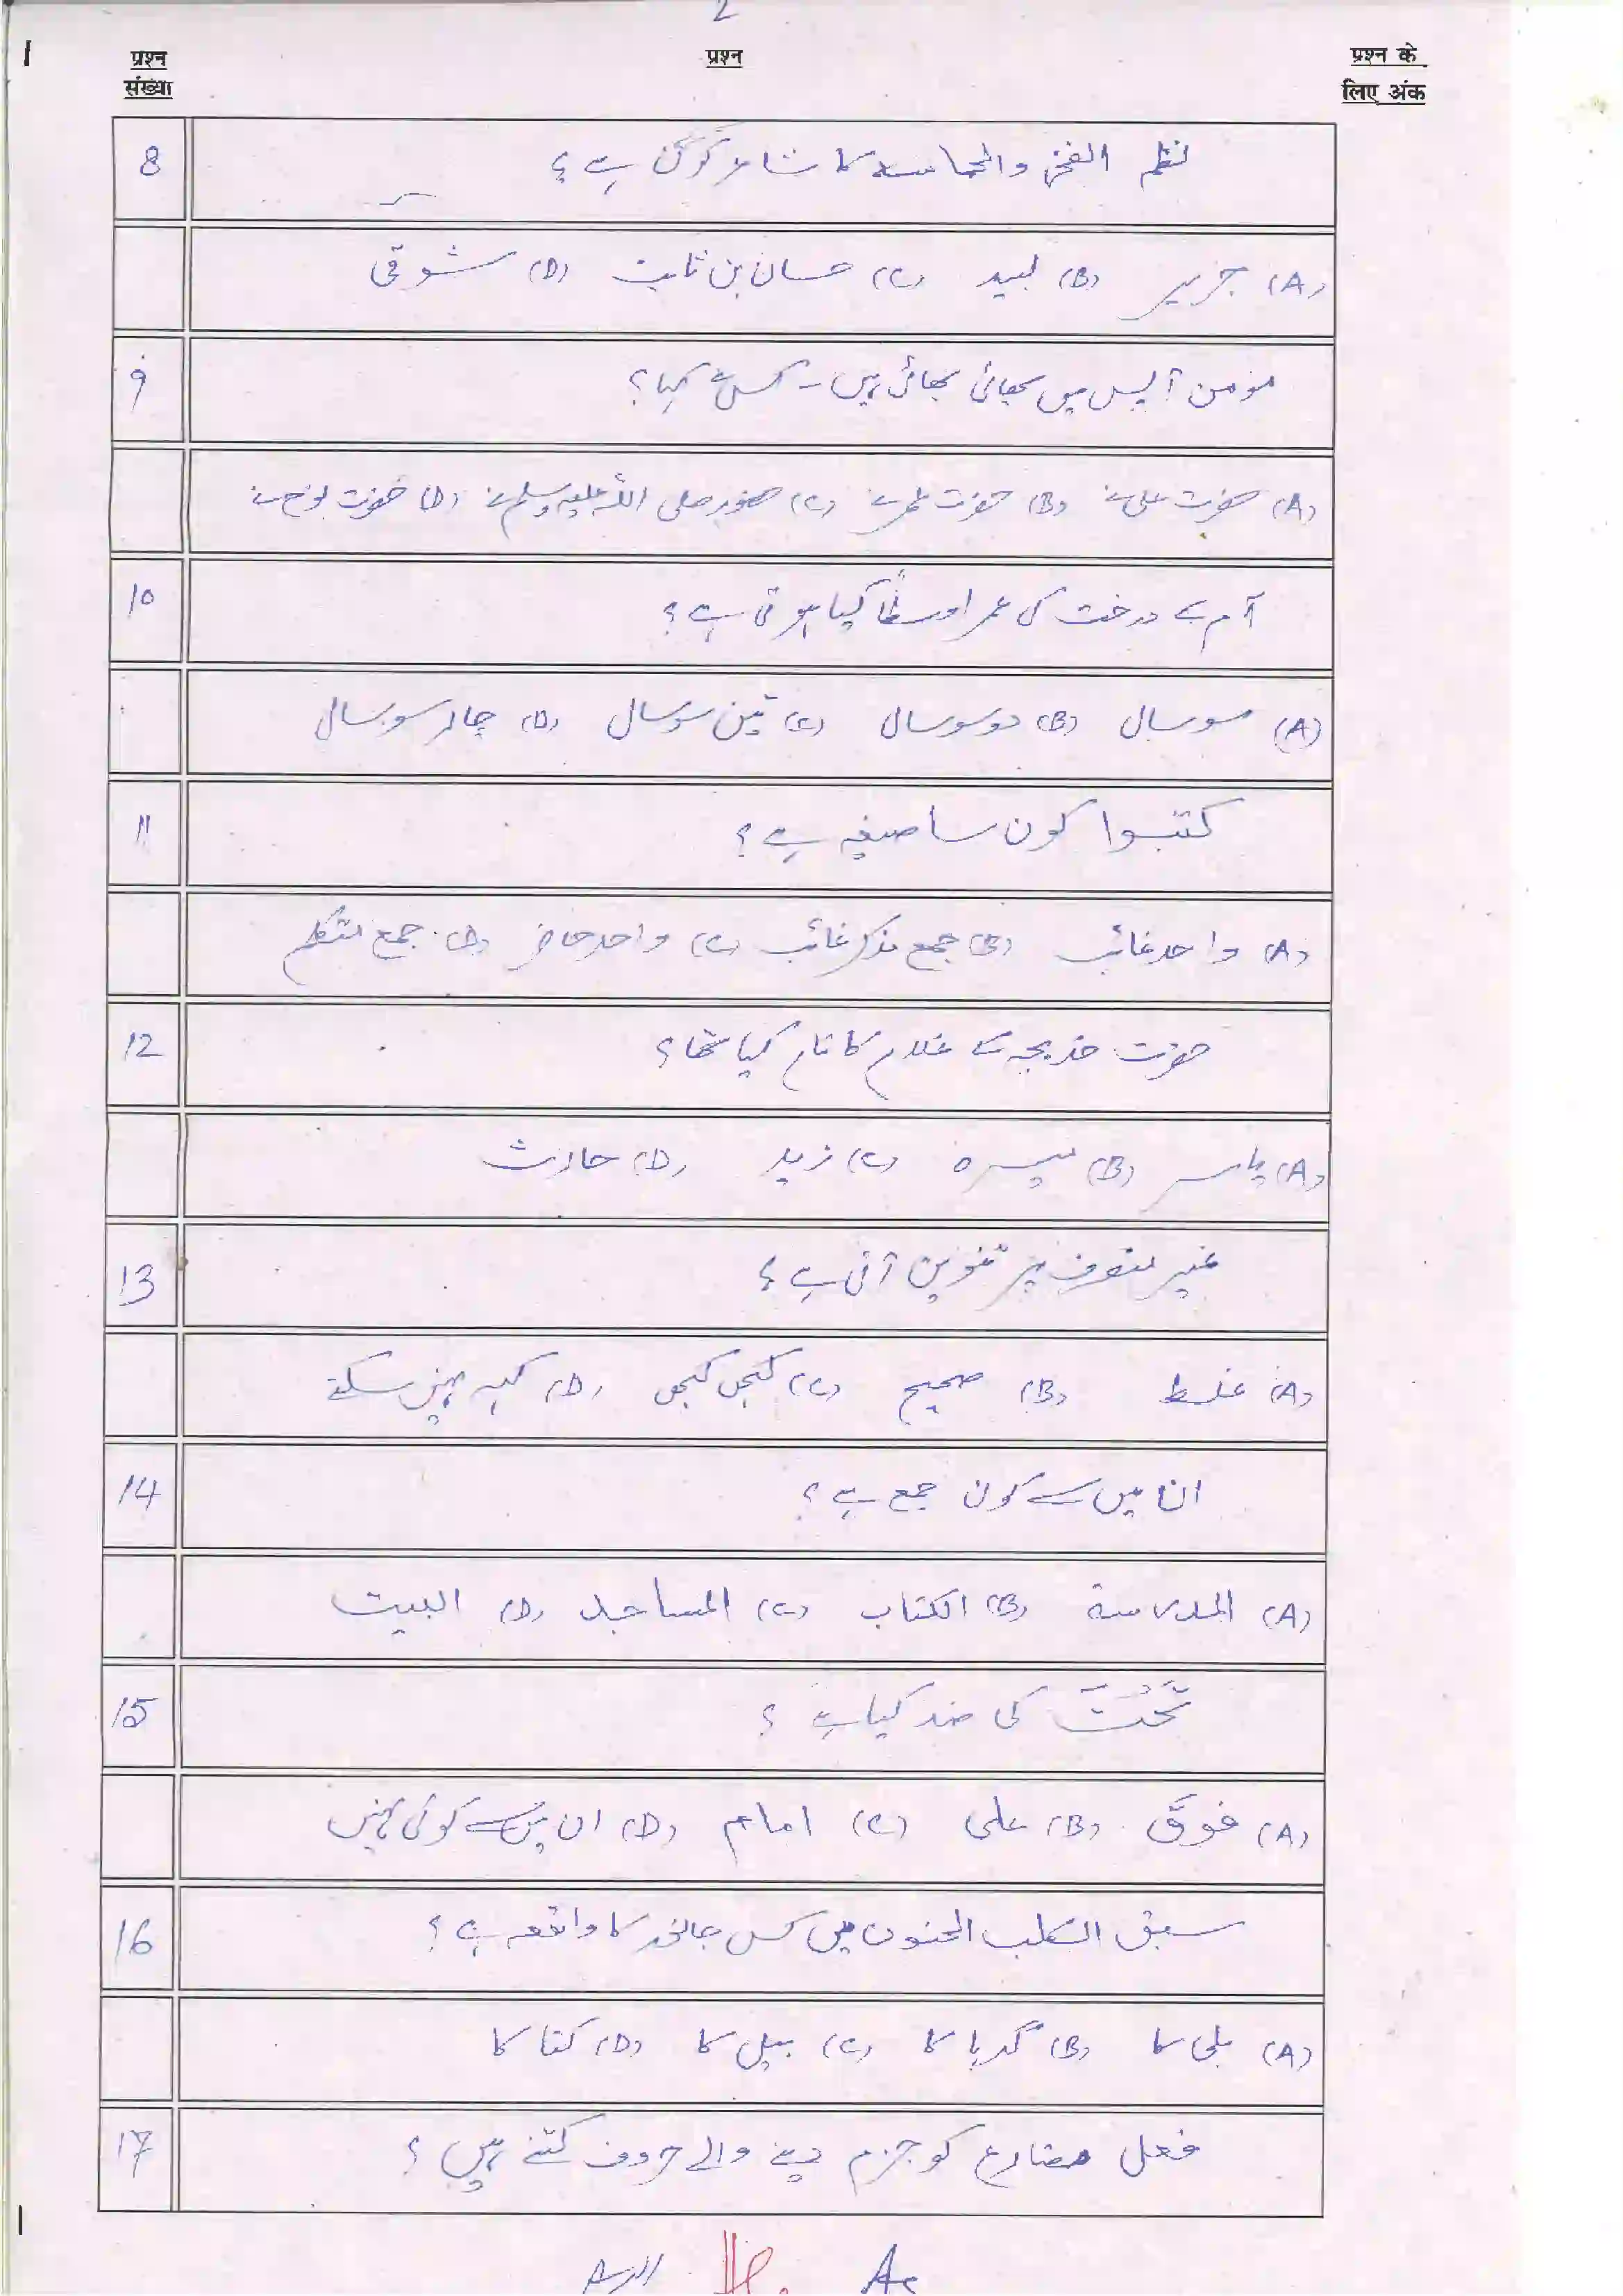 2
प्रश्न संख्या
प्रश्न
प्रश्न के लिए अंक
8 نظم الفخر والحماسہ کا شاعر کون ہے؟
(A) جریر (B) لبید (C) حسان بن ثابت (D) شوقی
9 مومن آپس میں بھائی بھائی ہیں - کس نے کہا؟
(A) حضرت علی نے (B) حضرت عمر نے (C) حضور صلی اللہ علیہ وسلم نے (D) حضرت نوح نے
10 آم کے درخت کی عمر اوسطاً کیا ہوتی ہے؟
(A) سو سال (B) دو سو سال (C) تین سو سال (D) چار سو سال
11 کتبوا کون سا صیغہ ہے؟
(A) واحد غائب (B) جمع مذکر غائب (C) واحد حاضر (D) جمع متکلم
12 حضرت خدیجہ کے غلام کا نام کیا تھا؟
(A) یاسر (B) میسرہ (C) زید (D) حارث
13 غیر منصرف پر تنوین آتی ہے؟
(A) غلط (B) صحیح (C) کبھی کبھی (D) کہہ نہیں سکتے
14 ان میں سے کون جمع ہے؟
(A) المدرسة (B) الکتاب (C) المساجد (D) البیت
15 تَحْتَ کی ضد کیا ہے؟
(A) فوقَ (B) علی (C) امام (D) ان میں سے کوئی نہیں
16 سبق الکلب الحنون میں کس جانور کا واقعہ ہے؟
(A) بلی کا (B) گدہا کا (C) بیل کا (D) کتا کا
17 فعل مضارع کو جزم دینے والے حروف کتنے ہیں؟